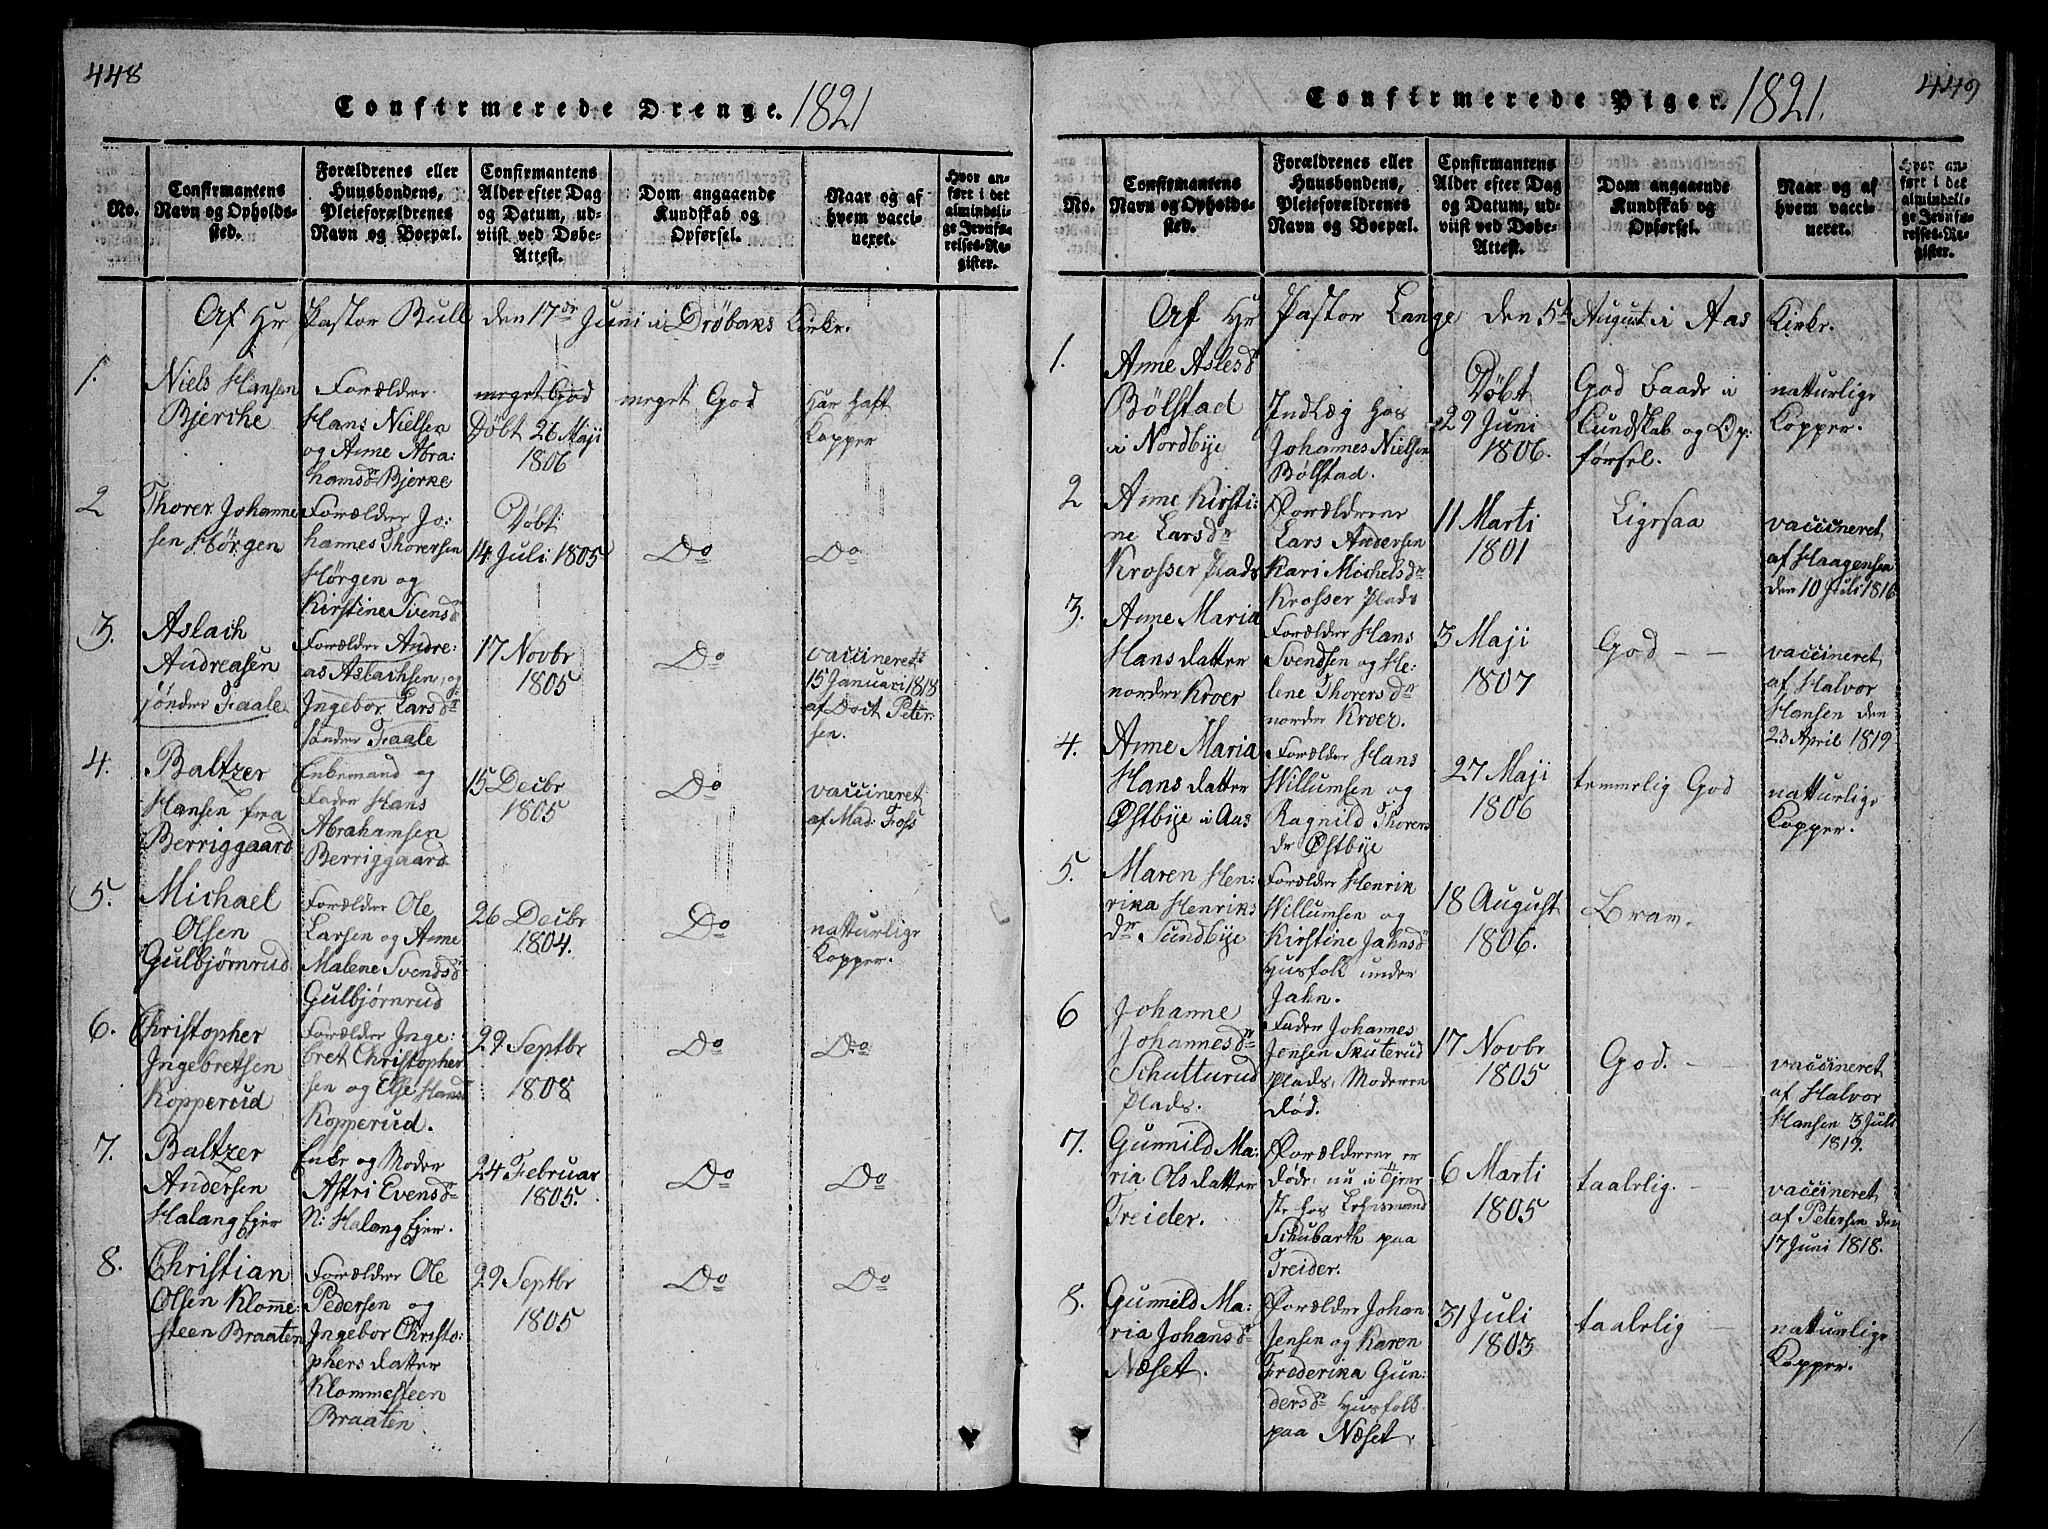 448
Confirmerede Drenge. 1821
No.
Confirmantens
Navn og Opholds-
sted.
Forældrenes eller
Huusbondens,
Pleieforældrenes
Navn og Boepæl.
Confirmantens
Alder efter Dag
og Datum, ud-
viist ved Døbe-
Attest.
Dom angaaende
Kundskab og
Opførsel.
Naar og af
hvem vacci-
neret.
Hvor an-
ført i det
almindeli-
ge Jevnfø-
relses-Re-
gister.
Af Hr Pastor Bull den 17de Juni i Drøbaks Kirke.
1.
Niels Hansen
Bjerche
Forælder
Hans Nielsen
og Anne Abra:
hamsdr Bjerke
meget God
Døbt 26 Maji
1806
meget God
Har haft
Kopper
2
Thorer Johanne
sen Hørgen
Forælder Jo:
hannes Thorersen
Hørgen og
Kirstine Svensdr
Døbt
14 Juli 1805
Do
Do
3.
Aslach
Andreasen
søndre Fraale
Forælder Andre:
as Aslachsen, og
Ingebor Larsdr
søndre Fraale
17 Novbr
1805
Do
vaccineret
15 Januari 1818
af Doct Peter
sen.
4.
Baltzer
Hansen fra
Berriggaard
Enkemand og
Fader Hans
Abrahamsen
Berriggaard
15 Decbr
1805
Do
vaccineret
af Mad: Foss
5.
Michael
Olsen
Gulbjørnrud
Forælder Ole
Larsen og Anne
Malene Svendsd
Gulbjørnrud
26 Decbr
1804.
Do
natturlige
Kopper.
6.
Christopher
Ingebretsen
Kopperud
Forælder Inge:
bret Christopher
sen og Else Hansd
Kopperud.
29 Septbr
1808
Do
Do
7.
Baltzer
Andersen
Halang Ejer
Enke og Moder
Astri Evensdr
N: Halang Ejer.
24 Februar
1805.
Do
Do
8.
Christian
Olsen Klomme:
steen Braaten
Forælder Ole
Pedersen og
Ingebor Christo:
phers datter
Klommesteen
Braaten
29 Septbr
1805
Do
Do
449
Confirmerede Piger. 1821.
No.
Confirmantens
Navn og Opholds-
sted.
Forældrenes eller
Huusbondens,
Pleieforældrenes
Navn og Boepæl.
Confirmantens
Alder efter Dag
og Datum, ud-
viist ved Døbe-
Attest.
Dom angaaende
Kundskab og
Opførsel.
Naar og af
hvem vacci-
neret.
Hvor an-
ført i det
almindeli-
ge Jevnfø-
relses-Re-
gister.
Af Hr Pastor Lange den 5te August i Aas Kirke.
1.
Anne Aslesd
Bølstad
i Nordbye
Indlæg hos
Johannes Nielsen
Bølstad.
Døbt
29 Juni
1806.
God baade i
Kundskab og Op:
førsel.
natturlige
Kopper.
2
Anne Kirsti:
ne Larsdr
Krosser Plads
Forælderne
Lars Andersen
Kari Michelsdr
Krosser Plads
11 Marti
1801
Ligesaa
vaccineret
af Haagensen
den 10 Juli 1816
3.
Anne Maria
Hans datter
nordre Kroer
Forælder Hans
Svendsen og He:
lene Thorersdr
nordre Kroer.
3 Maji
1807
God - -
vaccineret
af Halvor
Hansen den
23 April 1819
4.
Anne Maria
Hans datter
Østbye i Aas
Forælder Hans
Willumsen og
Ragnild Thorers
dr Østbye
27 Maji
1806
temmelig God
natturlige
Kopper.
5.
Maren Hen:
rika Henriks
dr Sundbye
Forælder Henrik
Willumsen og
Kirstine Jahnsd
Husfolk under
Jahn.
18 August
1806.
Bram.
6
Johanne
Johannesdr
Schutturud
Plads.
Fader Johannes
Jensen Skuterud
Plads, Moderen
død.
17 Novbr
1805
God. -
vaccineret
af Halvor
Hansen 3 Juli
1819.
7.
Gunnild Ma:
ria Olsdatter
Treider.
Forælderne er
døde, nu i Tjene
ste hos Lehnsmand
Schubarth paa
Treider.
6 Marti
1805
taalelig. -
vaccineret
af Petersen den
17 Juni 1818.
8.
Gunnild Ma:
ria Johansd
Næset.
Forælder Johan
Jensen og Karen
Frederika Gun:
dersdr Husfolk
paa Næset.
31 Juli
1803
taalelig -
natturlige
Kopper.